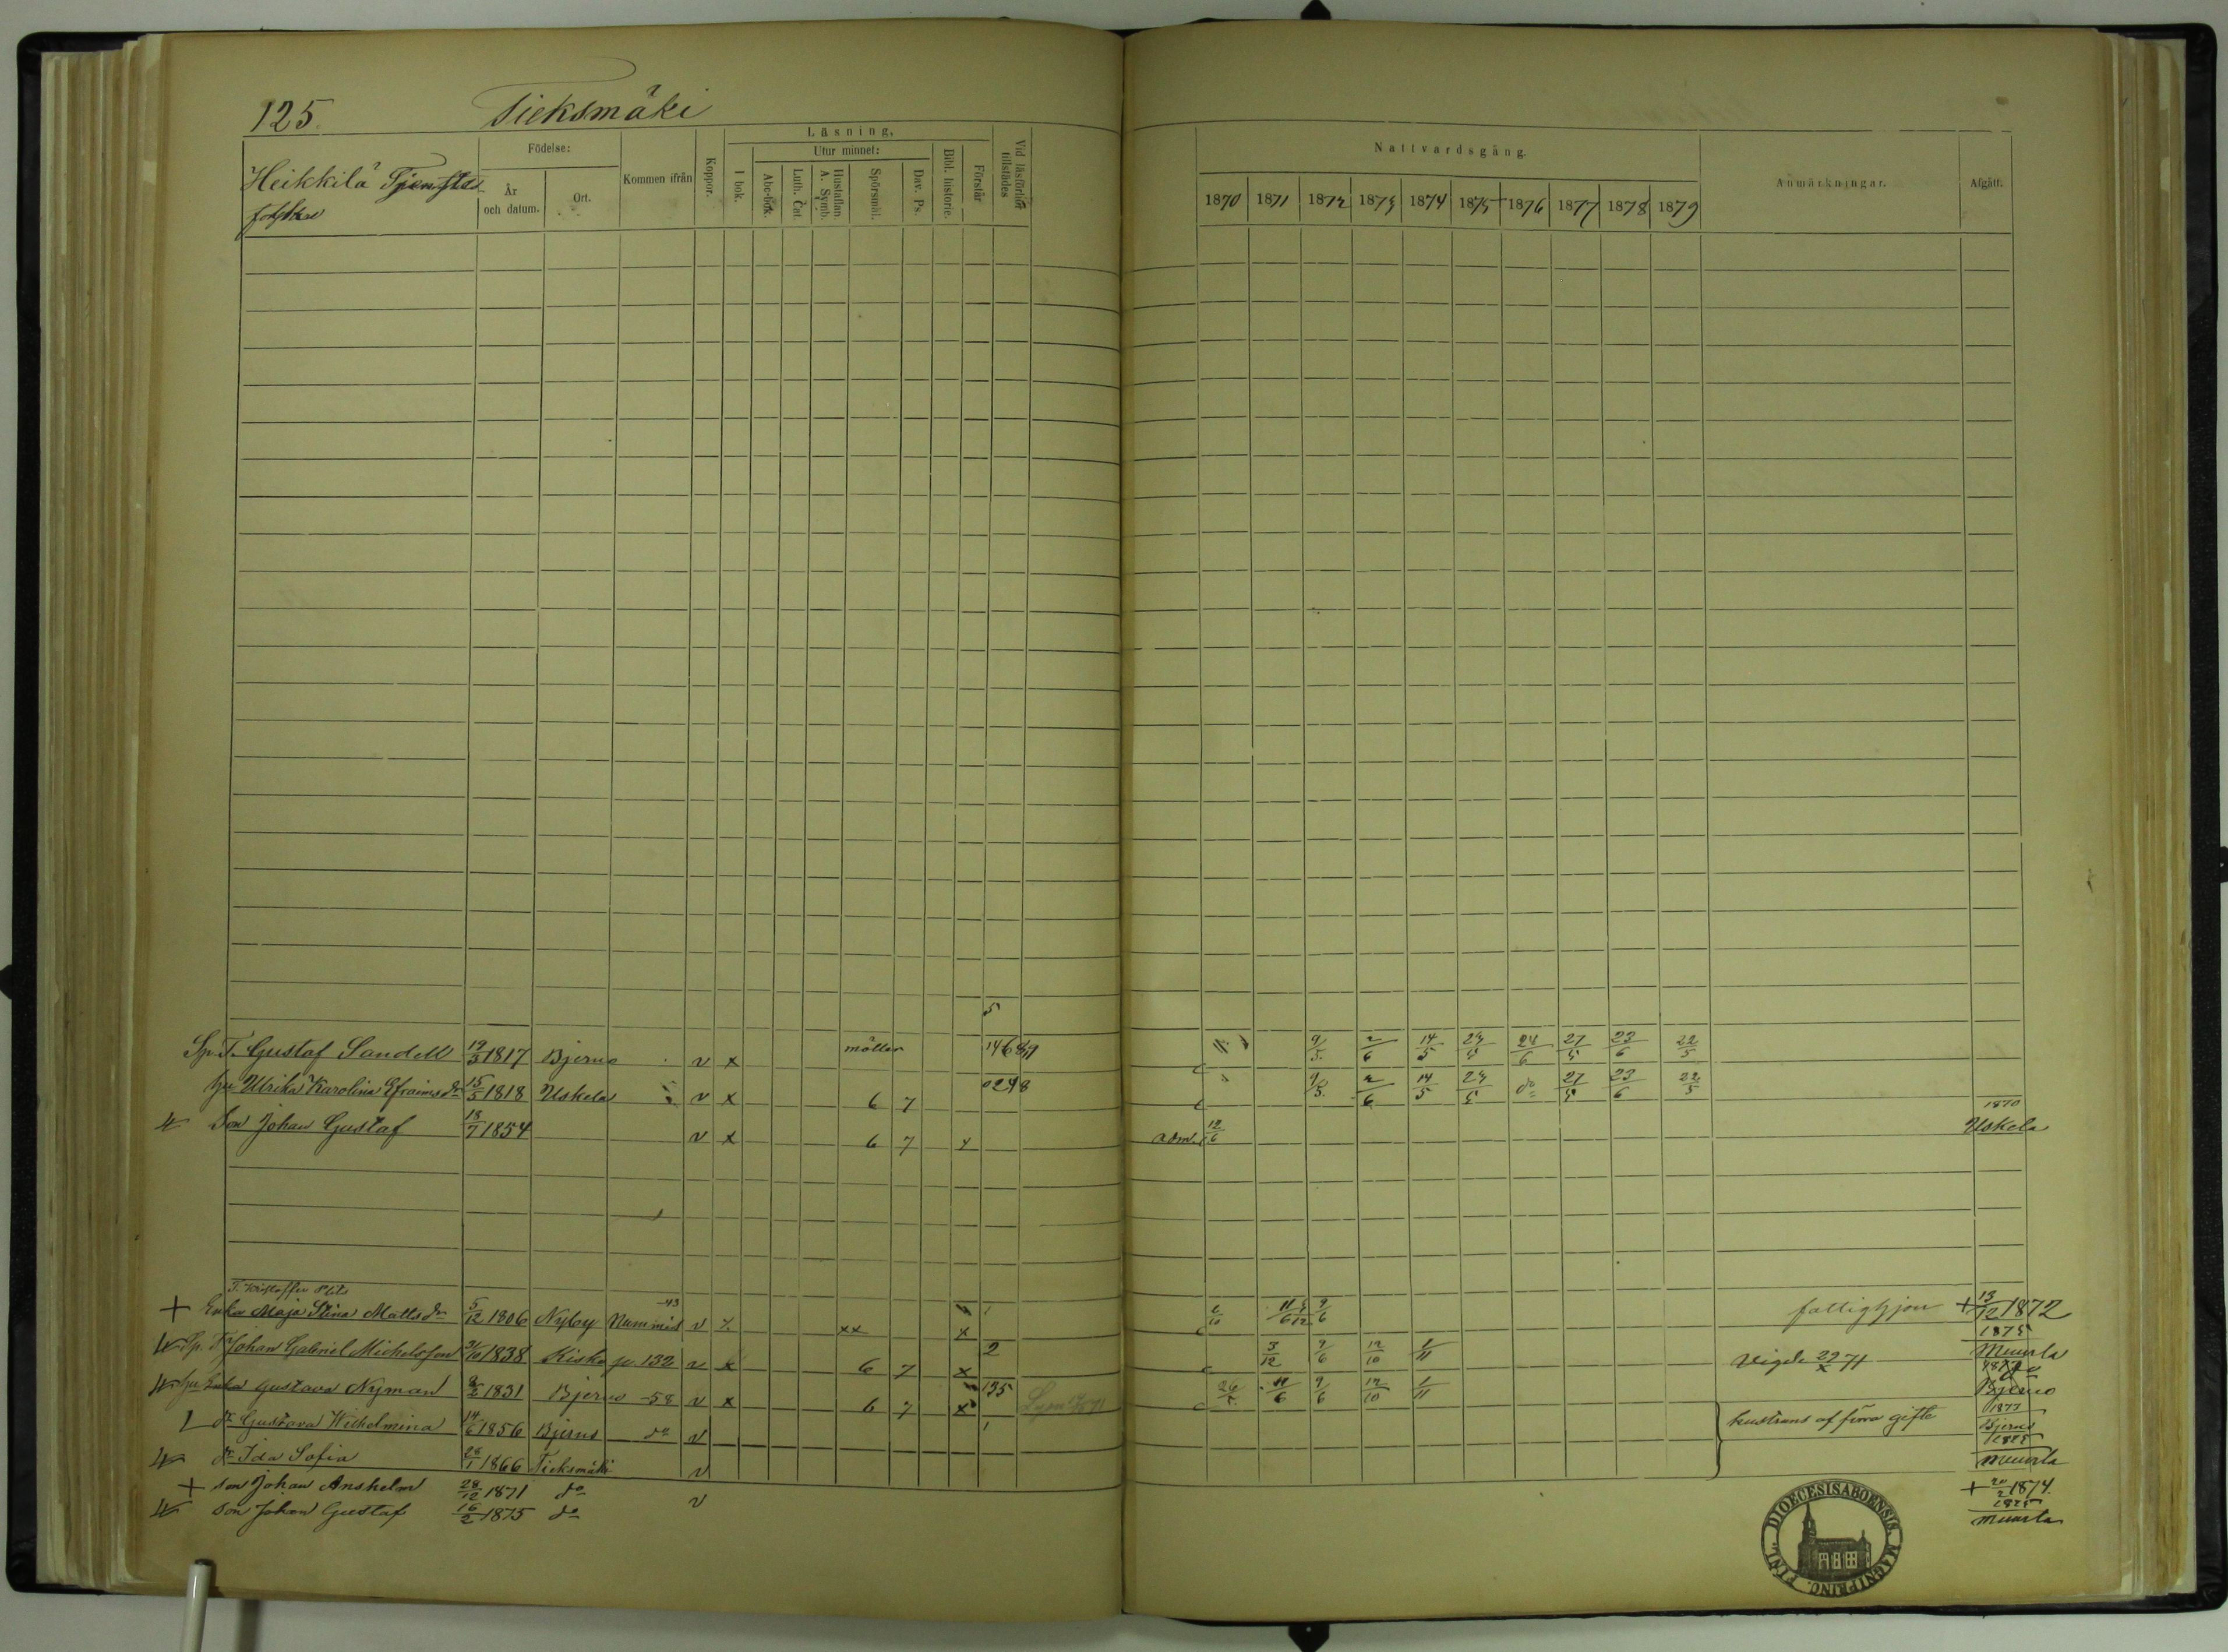 125. Tieksmäki
Heikkilä Tjenste
folket
Födelse:
År och datum.
Ort.
Kommen ifrån
Koppor.
Läsning,
I bok.
Utur minnet:
Abc-bok.
Luth. Cat.
Hustaflan A. Symb.
Spörsmål.
Dav. Ps.
Bibl. historie.
Förstår
Vid läsförhör tillstädes
Nattvardsgång.
1870 1871 1872 1873 1874 1875 1876 1877 1878 1879
Anmärkningar.
Afgått.
5
Sp. T. Gustaf Sandell 19/5 1817 Bjerno v x möller 9/5 2/6 14/5 24/5 24/6 27/5 23/6 22/5
hu Ulrika Karolina Efraimsdr 15/5 1818 Uskela v x 6 7 0248 9/5 2/6 14/5 24/5 do 27/5 23/6 22/5
Son Johan Gustaf 18/7 1854 v x 6 7 x adm. 12/6 1870 Uskela
T. Kristoffer
Enka Maja Stina Mattsdr 5/12 1806 Nyby Nummis -43 v xx x 9/6 fattighjon + 13/12 1872
Sp. T. Johan Gabriel Michelsson 31/10 1838 Kisko p. 132 v x 6 7 x 2 3/12 9/6 12/10 1/11 Vigde 22/X 71 1875 Muurla
hu Enka Gustava Nyman 1831 Bjerno -58 v x 6 7 x 135 26/ 11/6 9/6 12/10 1/11 do
dr Gustava Wilhelmina 14/6 1856 Bjerno do v hustruns af förra gifte Bjerno 1877
dr Ida Sofia 28/1 1866 Tieksmäki v Bjerno 1875 Muurla
+ son Johan Anshelm 28/12 1871 do v + 20/2 1874.
son Johan Gustaf 16/2 1875 do 1875 Muurla
DIOECESIS ABOENSIS. MAGNI PRINC. FINL.